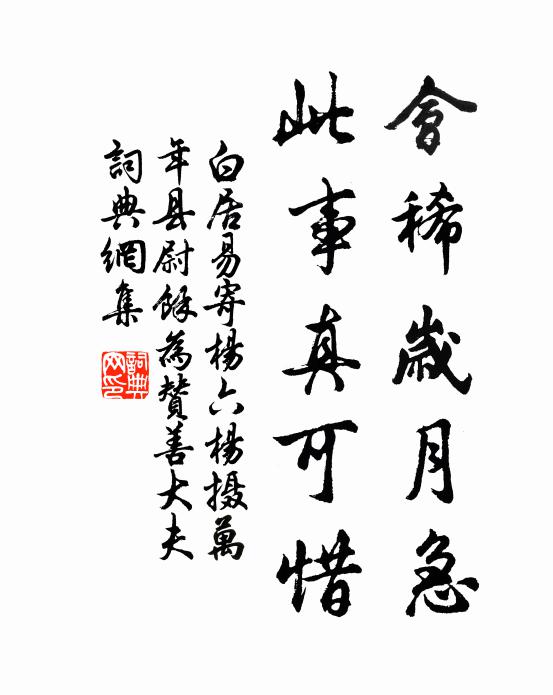 會稀歲月急
此事真可惜
白居易寄楊六楊摄萬
年县尉餘為贊善大夫
詞典網集
詞典網印